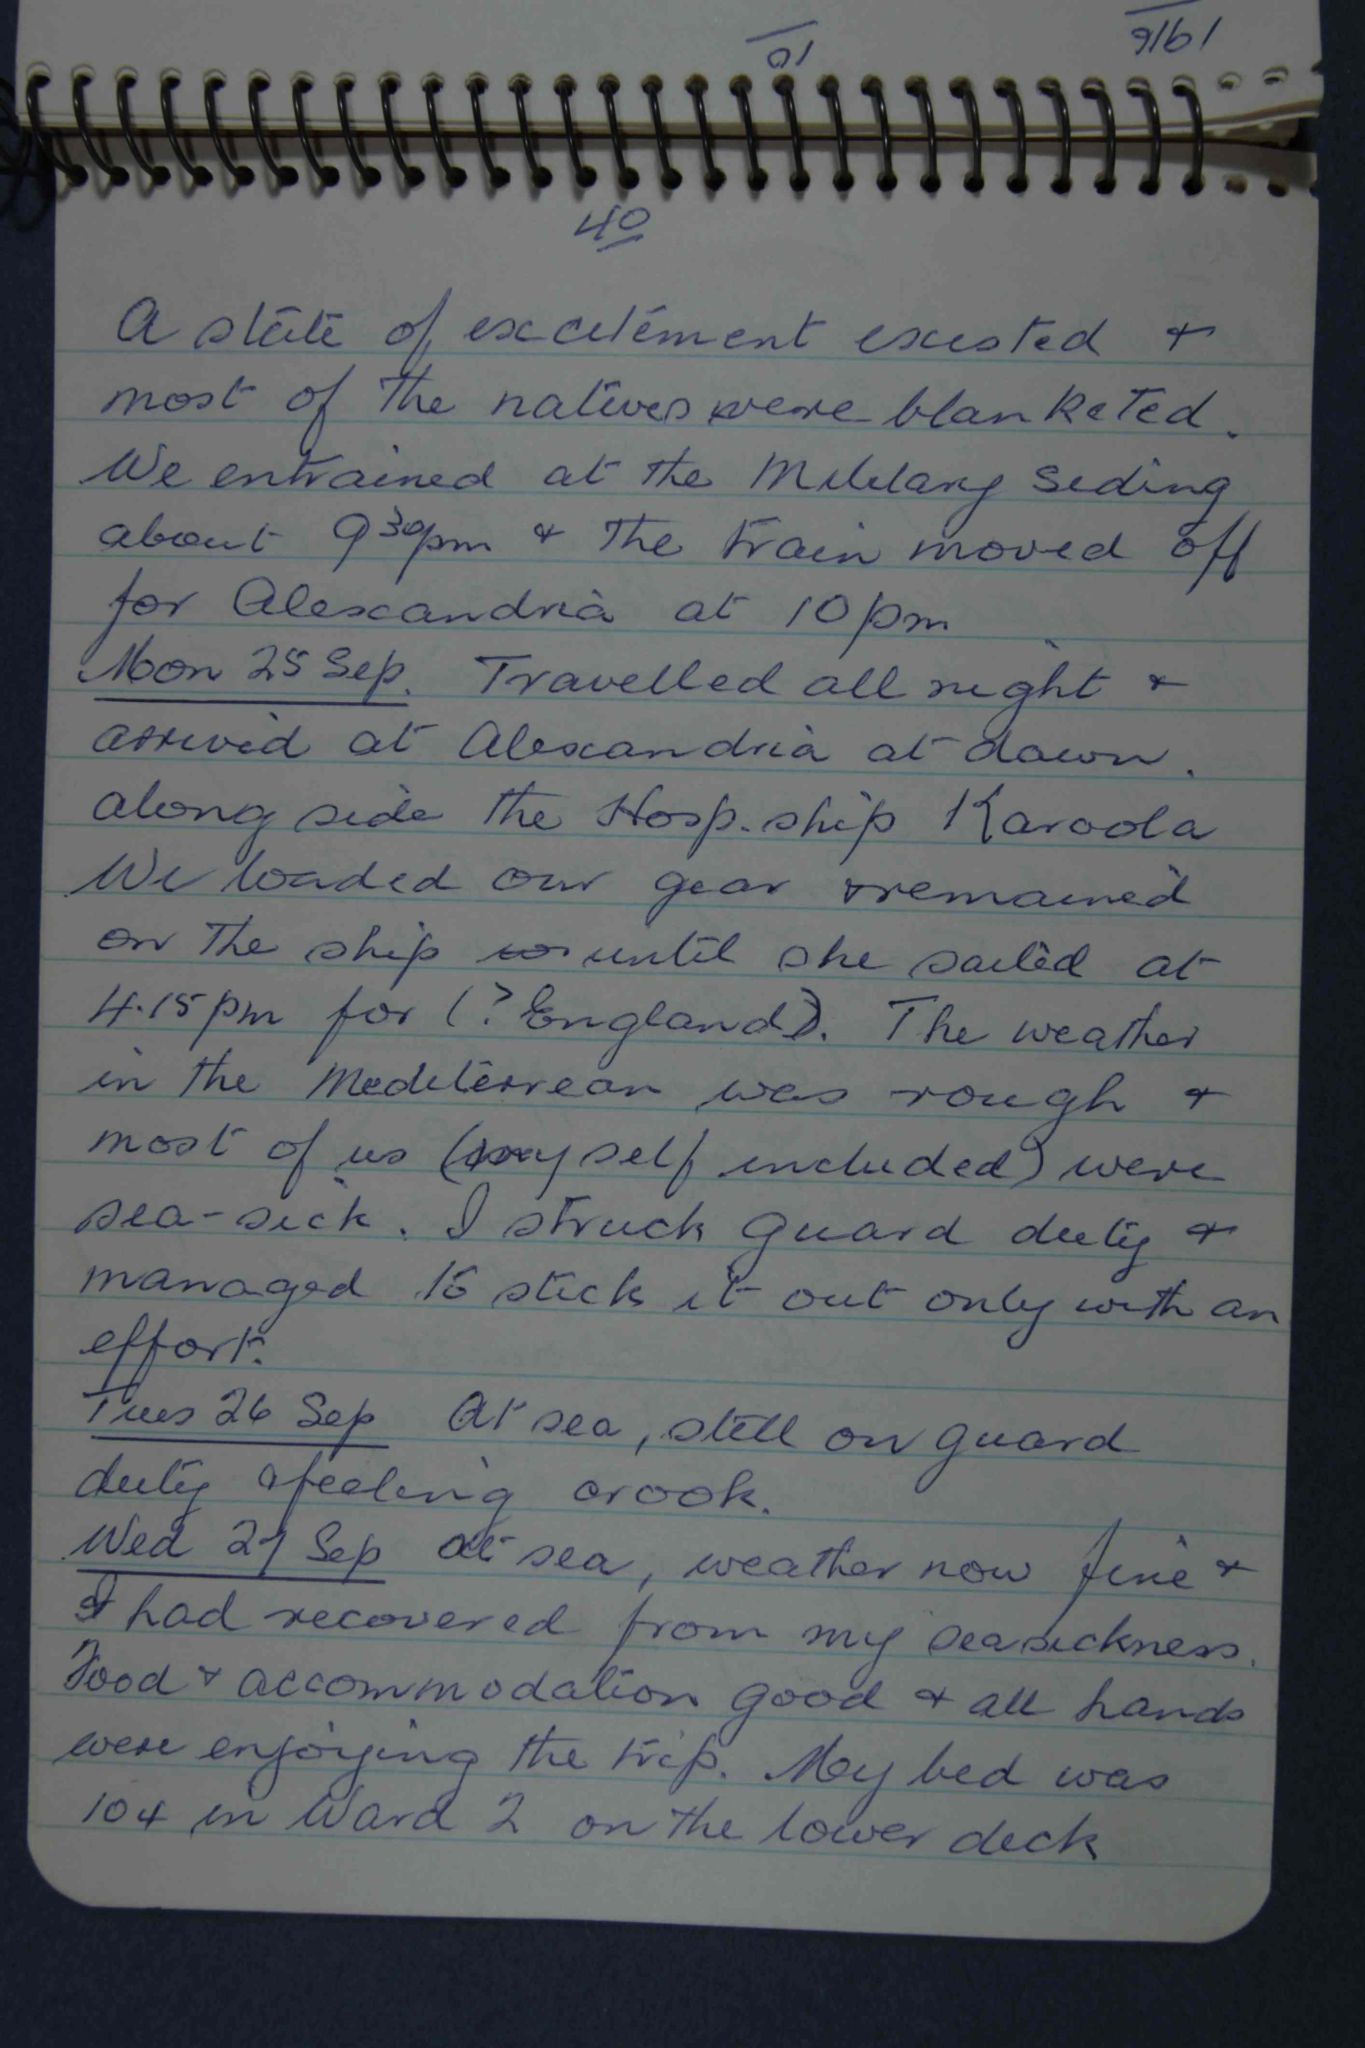 10
1916
40
A state of excitement existed &
most of the natives were blanketed.
We entrained at the Military Siding
about 9 30pm & the train moved off
for Alexandria at 10 pm
Mon 25 Sep. Travelled all night &
arrived at Alexandria at dawn.
along side the Hosp. ship Karoola
We loaded our gear & remained
on the ship until she sailed at
4.15 pm for (? England). The weather
in the Mediterrean was rough &
most of us (myself included) were
sea-sick. I struck guard duty &
managed to stick it out only with an
effort.
Tues 26 Sep At sea, still on guard
duty & feeling crook.
Wed 27 Sep at sea, weather now fine &
I had recovered from my seasickness.
Food & accommodation good & all hands
were enjoying the trip. My bed was
104 in Ward 2 on the lower deck